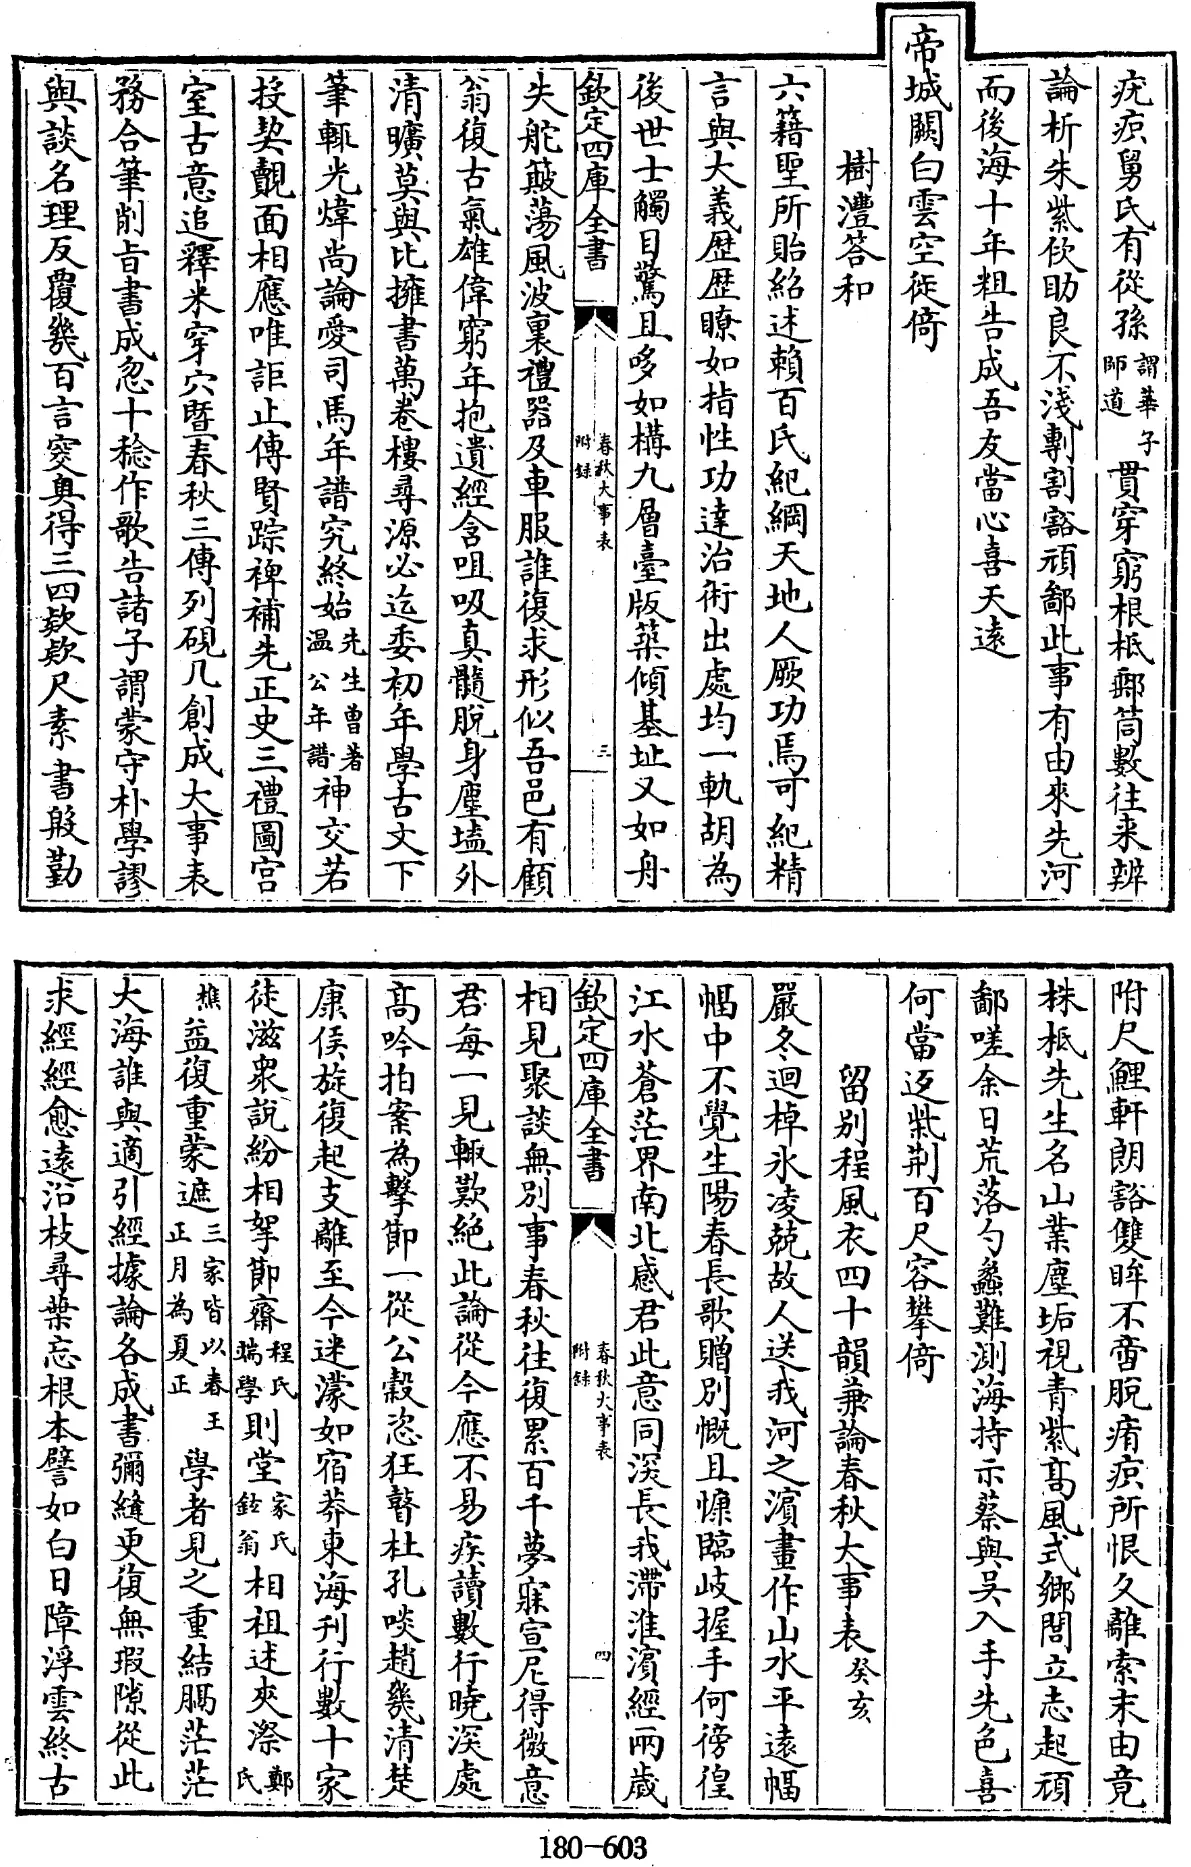 疣疻舅氏有從孫謂華子師道貫穿窮根柢郵筒數往来辨
論析朱紫佽助良不淺剸割豁頑鄙此事有由來先河
而後海十年粗告成吾友當心喜天遠
帝城闕白雲空徙倚
樹灃答和
六籍聖所貽紹述賴百氏紀綱天地人厥功焉可紀精
言與大義歷歷瞭如指性功達治術出處均一軌胡為
後世士觸目驚且哆如構九層臺版築傾基址又如舟
欽定四庫全書
春秋大事表
附錄
三
失舵簸蕩風波裏禮器及車服誰復求形似吾邑有顧
翁復古氣雄偉窮年抱遺經含咀吸真髓脫身塵壒外
清曠莫與比擁書萬卷樓尋源必迄委初年學古文下
筆輒光煒尚論愛司馬年譜究終始先生曾著温公年譜神交若
授契覿面相應唯詎止傳賢踪裨補先正史三禮圖宮
室古意追釋米穿穴暨春秋三傳列硯几創成大事表
務合筆削旨書成忽十稔作歌告諸子謂蒙守朴學謬
與談名理反覆幾百言窔奥得三四欵欵尺素書殷勤
附尺鯉軒朗豁雙眸不啻脫痏疻所恨久離索末由竟
株柢先生名山業塵垢視青紫高風式鄉閭立志起頑
鄙嗟余日荒落勺蠡難測海持示蔡與吴入手先色喜
何當返紫荆百尺容攀倚
留别程風衣四十韻兼論春秋大事表癸亥
嚴冬迴棹氷凌兢故人送我河之濵畫作山水平遠幅
幅中不覺生陽春長歌贈别慨且慷臨歧握手何徬徨
江水蒼茫界南北感君此意同深長我滯淮濵經兩歲
欽定四庫全書
春秋大事表
附錄
四
相見聚談無别事春秋往復累百千夢寐宣尼得微意
君每一見輒歎絶此論從今應不易疾讀數行曉深處
高吟拍案為擊節一從公穀恣狂瞽杜孔啖趙幾清楚
康侯旋復起支離至今迷濛如宿莽東海刊行數十家
徒滋衆說紛相拏節齋程氏端學則堂家氏鉉翁相祖述夾漈鄭氏
樵益復重蒙遮三家皆以春王正月為夏正學者見之重結䐃茫茫
大海誰與適引經據論各成書彌縫更復無瑕隙從此
求經經愈遠沿枝尋葉忘根本譬如白日障浮雲終古
180-603